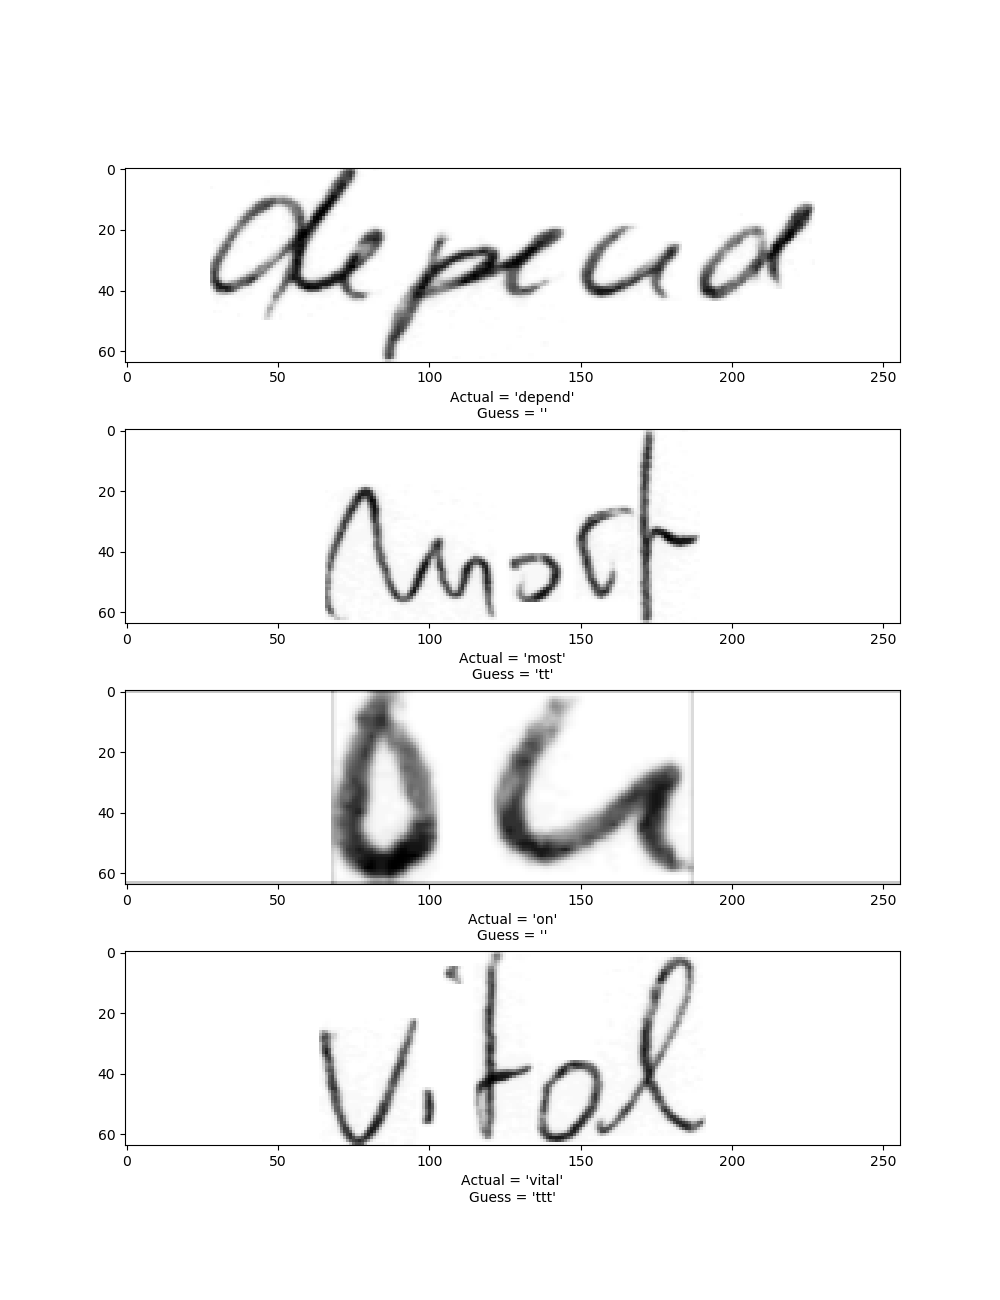 0
20
40
60
depend
0 50 100 150 200 250
Actual = 'depend'
Guess = ''
0
20
40
60
most
0 50 100 150 200 250
Actual = 'most'
Guess = 'tt'
0
20
40
60
on
0 50 100 150 200 250
Actual = 'on'
Guess = ''
0
20
40
60
vital
0 50 100 150 200 250
Actual = 'vital'
Guess = 'ttt'